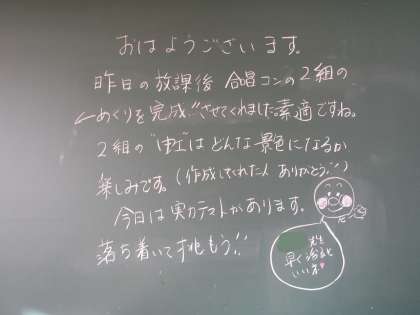 おはようございます。
昨日の放課後 合唱コンの2組の
めくりを完成!!させてくれました。素適ですね。
2組の"虹"はどんな景色になるか
楽しみです。(作成してくれた人 ありがとう!!)
今日は実力テストがあります。
落ち着いて挑もう!!
先生
早く治ると
いいネ